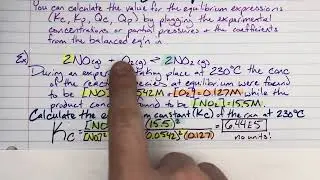 You can calculate the value for the equilibrium expressions
(Kc, Kp, Qc, Qp) by plugging the experimental
concentrations or partial pressures + the coefficients
from the balanced eq'n in
Ex) 2NO(g) + O2(g) ⇌ 2NO2(g)
During an experiment taking place at 230°C the conc
of the species at equilibrium were found
to be [NO] 0.0542M + [O2]=0.127M while the
product conc found to be =15.5M.
Calculate the constant (Kc) of the rxn at 230°C
Kc [NO (15.5)² = 6.44E5
[NO]² (0.0542)²(0.127) no units!